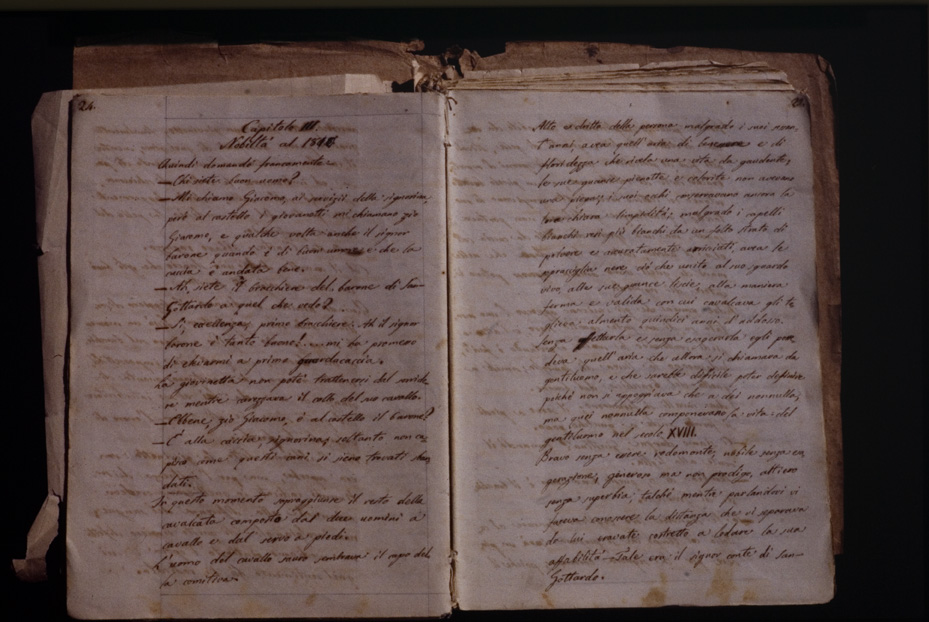 24.
Capitolo III.
Nobiltà al
Quindi domandò francamente:
— Chi siete buon uomo?
— Mi chiamo Giacomo, ai servizii della signorina,
però al castello i giovanotti mi chiamano zio
Giacomo, e qualche volta anche il signor
barone quando è di buon umore e che la
caccia è andata bene.
— Ah, siete il bracchiere del barone di San
Gottardo a quel che vedo?
— Sì, eccellenza, primo bracchiere. Ah il signor
barone è tanto buono!... mi ha promesso
di chiamarmi a primo guardacaccia.
La giovinetta non potè trattenersi dal sorride
re mentre carezzava il collo del suo cavallo.
— Ebbene, zio Giacomo, è al castello il barone?
— È alla caccia, signorina, soltanto non ca
pisco come questi cani si sieno trovati
dati.
In questo momento sopraggiunse il resto della
cavalcata composto dal due uomini a
cavallo e dal servo a piedi.
L'uomo dal cavallo sauro sembrava il capo del
la comitiva.
Alto e diritto della persona malgrado i suoi
t'anni, aveva quell'aria di e di
che rivela una vita da gaudente,
le sue guance pienotte e colorite non avevano
una piega, i suoi occhi conservavano ancora la
loro chiara limpidità; malgrado i capelli
bianchi resi più bianchi da un folto strato di
polvere e accuratamente arricciati, avea le
sopracciglia nere, ciò che unito al suo sguardo
vivo, alle sue guance liscie, alla maniera
ferma e valida con cui cavalcava gli to
glieva almeno quindici anni d'addosso.
Senza e senza esagerarla egli pos
sedeva quell'aria che allora si chiamava da
gentiluomo, e che sarebbe difficile poter definire
poichè non si appoggiava che a dei nonnulla,
ma quei nonnulla componevano la vita del
gentiluomo nel secolo XVIII.
Bravo senza essere rodomonte, nobile senza esa
gerazione, generoso ma non prodigo, altiero
senza superbia, talchè mentre parlandovi vi
faceva conoscere la distanza che vi separava
da lui eravate costretto a lodare la sua
affabilità — Tale era il signor conte di San
Gottardo.